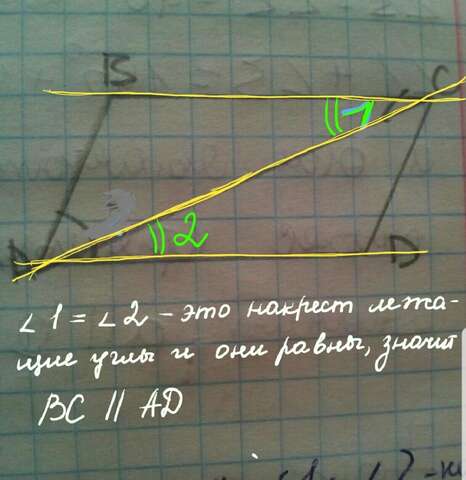 B
C
1
2
D
∠1 = ∠2 - это накрест лежа-
щие углы и они равны, значит
BC || AD